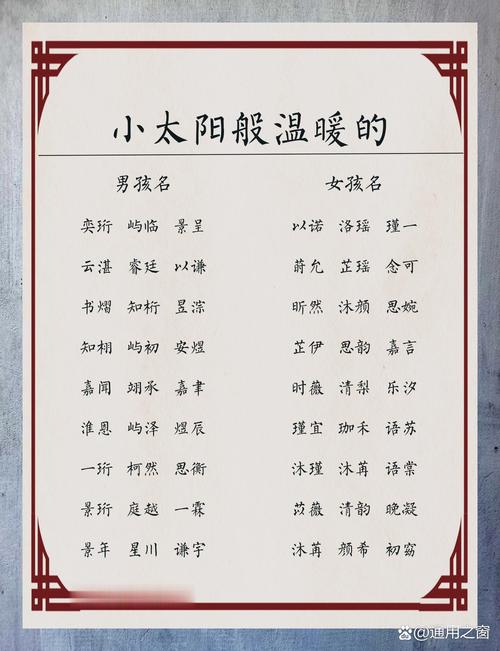 小太阳般温暖的
男孩名 女孩名
奕珩 屿临 景呈 以诺 洛瑶 瑾一
云湛 睿廷 以谦 莳允 芷瑶 念可
书熠 知桁 昱淙 昕然 沐颜 思婉
知栩 屿初 安煜 芷伊 思韵 嘉言
嘉闻 翊承 嘉聿 时薇 清梨 乐汐
淮恩 屿泽 煜辰 瑾宜 珈禾 语苏
一珩 柯然 思衡 沐瑾 沐苒 语棠
景珩 庭越 一霖 苡薇 清韵 晚凝
景年 星川 谦宇 沐苒 颜希 初窈
@通用之窗